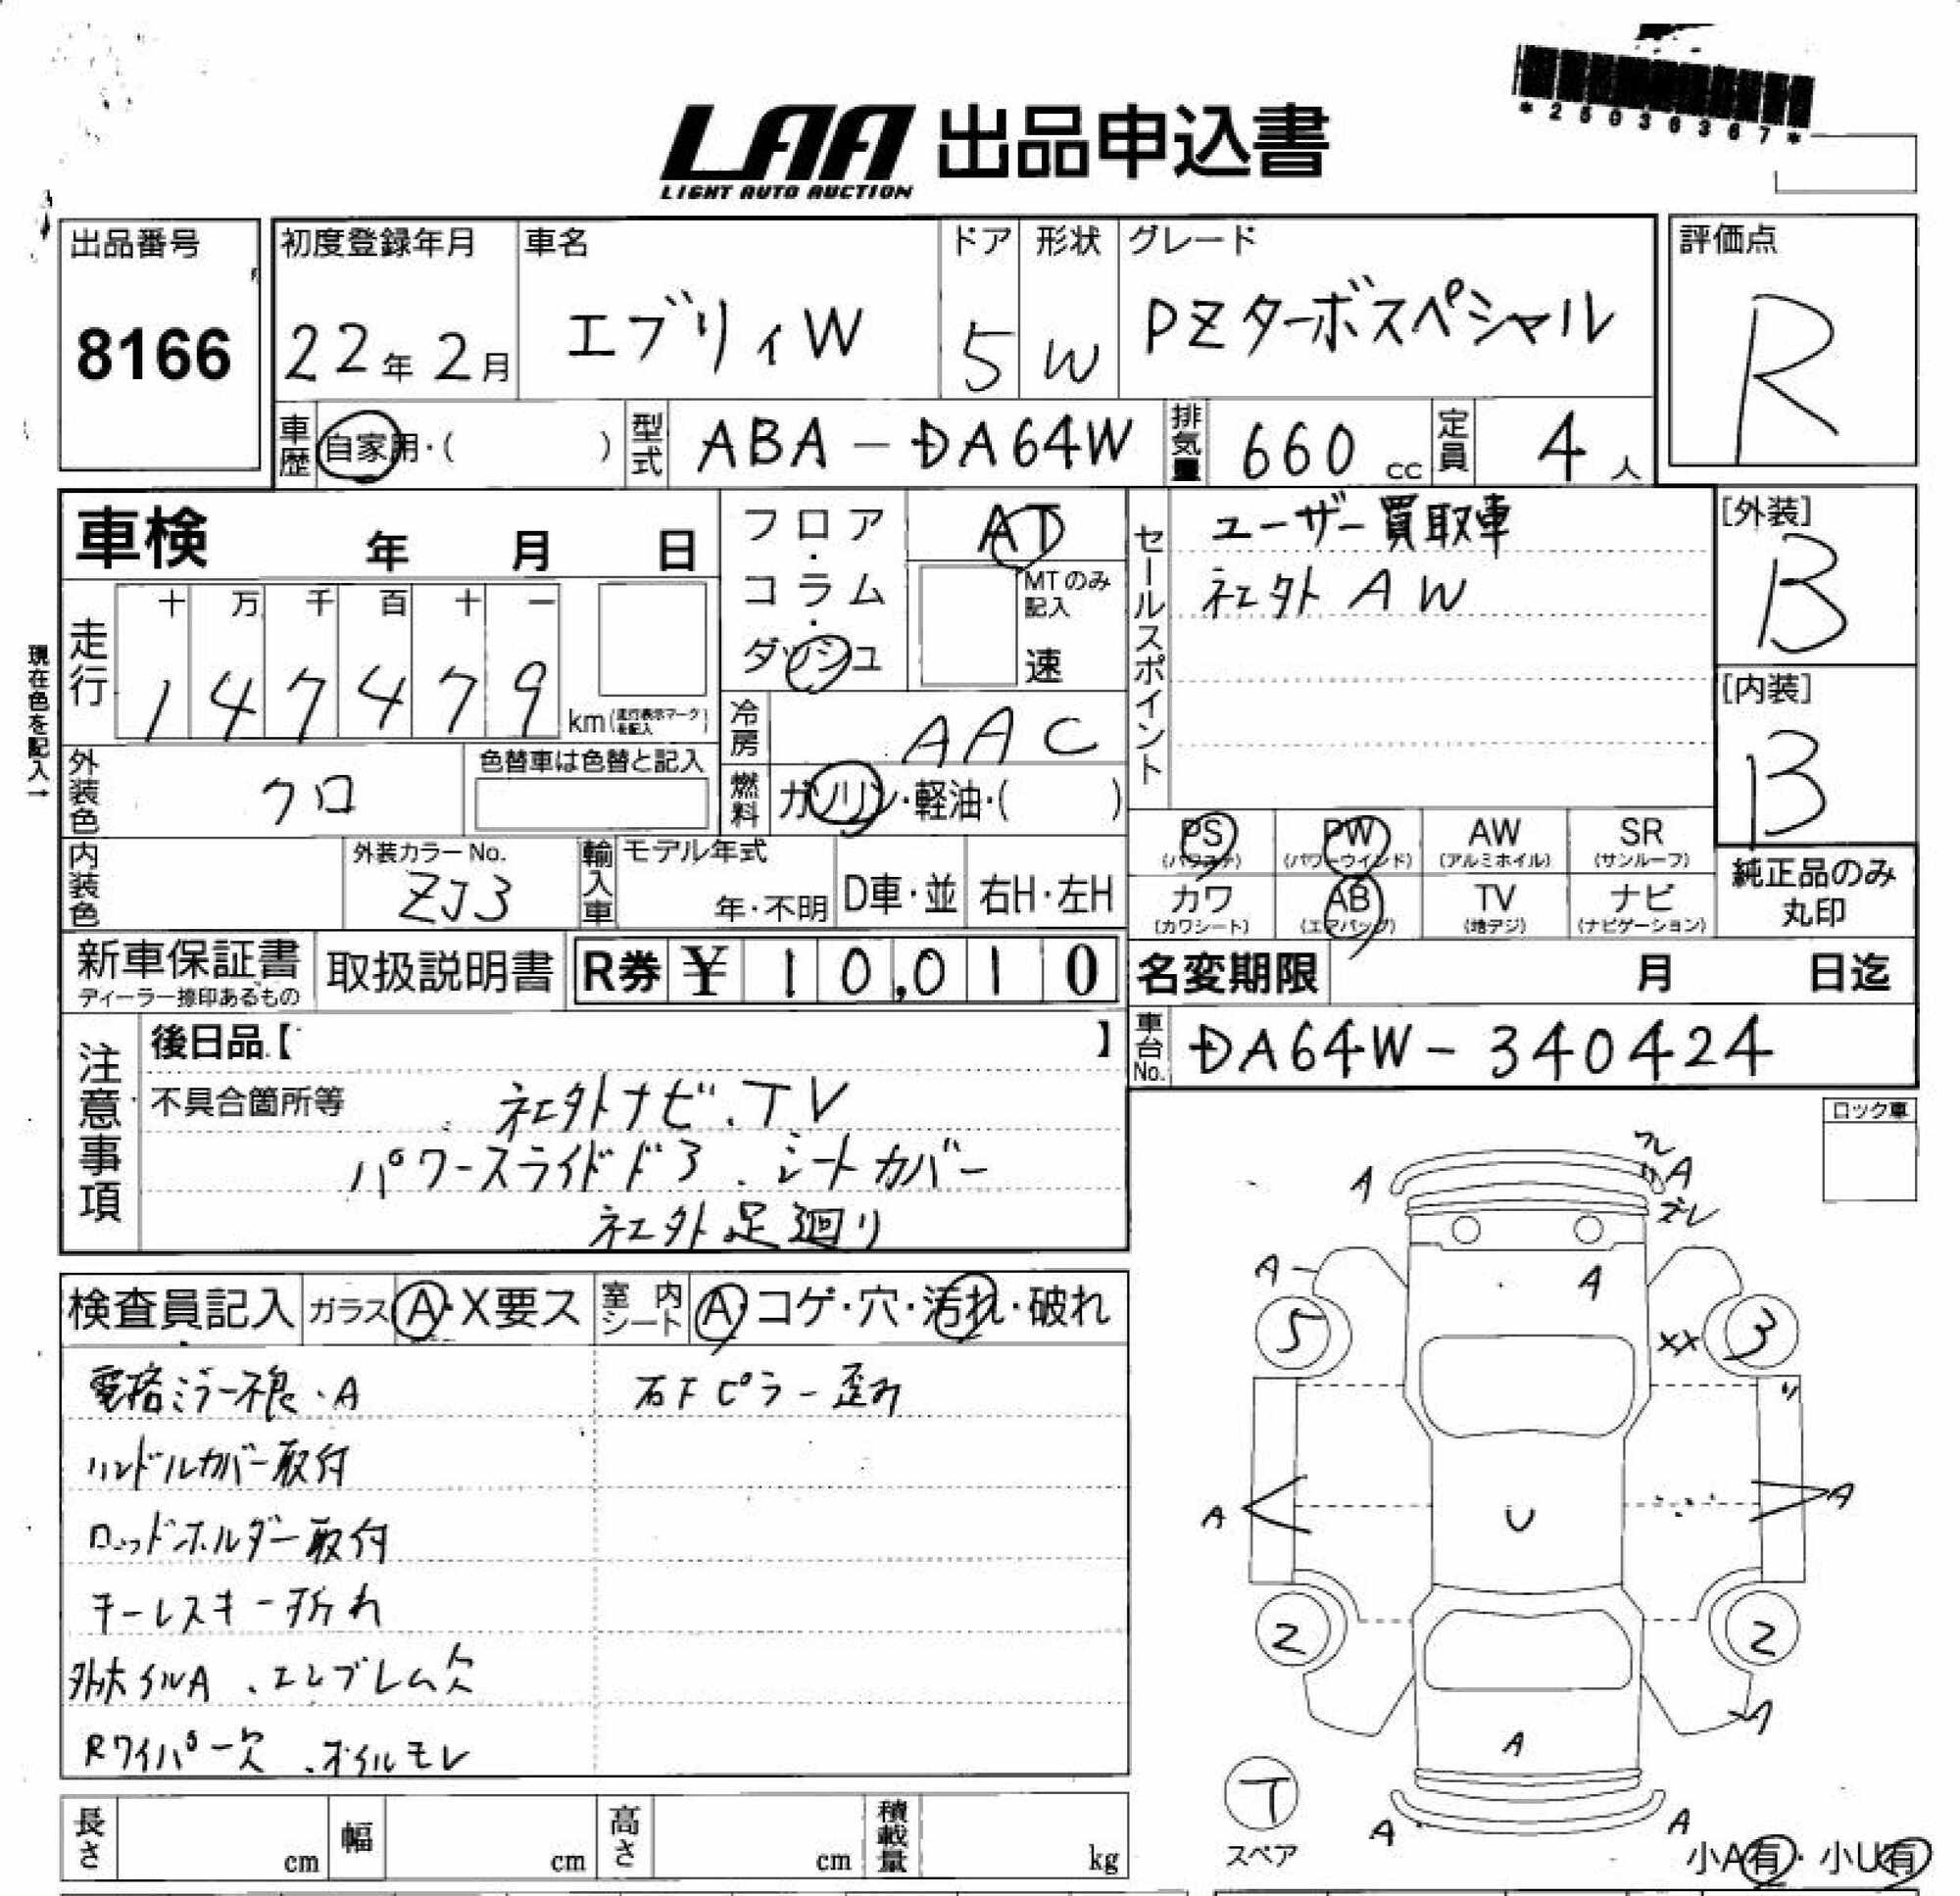 *25036367*
LAA 出品申込書
LIGHT AUTO AUCTION
出品番号
8166
初度登録年月
22年2月
車名
エブリィW
ドア
5
形状
W
グレード
PZターボスペシャル
評価点
R
車歴 自家用・( )
型式 ABA-DA64W
排気量 660 cc
定員 4 人
車検 年 月 日
フロア・コラム・ダッシュ
AT
MTのみ記入
速
走行
十 万 千 百 十 一
1 4 7 4 7 9
km(走行表示マークを記入)
現在色を記入→
冷房 AAC
燃料 ガソリン・軽油・( )
外装色 クロ
色替車は色替と記入
内装色
外装カラーNo.
ZJ3
輸入車
モデル年式
年・不明
D車・並
右H・左H
セールスポイント
ユーザー買取車
社外AW
[外装]
B
[内装]
B
PS (パワステ)
PW (パワーウインド)
AW (アルミホイル)
SR (サンルーフ)
カワ (カワシート)
AB (エアバッグ)
TV (地デジ)
ナビ (ナビゲーション)
純正品のみ
丸印
新車保証書
ディーラー捺印あるもの
取扱説明書
R券 ¥ 10,010
名変期限 月 日迄
車台No. DA64W-340424
注意事項
後日品【 】
不具合箇所等 社外ナビ.TV
パワースライドドア.シートカバー
社外足廻り
ロック車
検査員記入
ガラス A・X要ス
室内シート A・コゲ・穴・汚れ・破れ
電格ミラー不良・A
右Fピラー歪み
ハンドルカバー取付
ロッドホルダー取付
キーレスキー折れ
外ホイルA、エンブレム欠
Rワイパー欠、オイルモレ
ワレ
A
A
ズレ
A
A
5
XX
3
A
U
A
2
2
A
T
スペア
A
A
小A有・小U有
長さ cm
幅 cm
高さ cm
積載量 kg